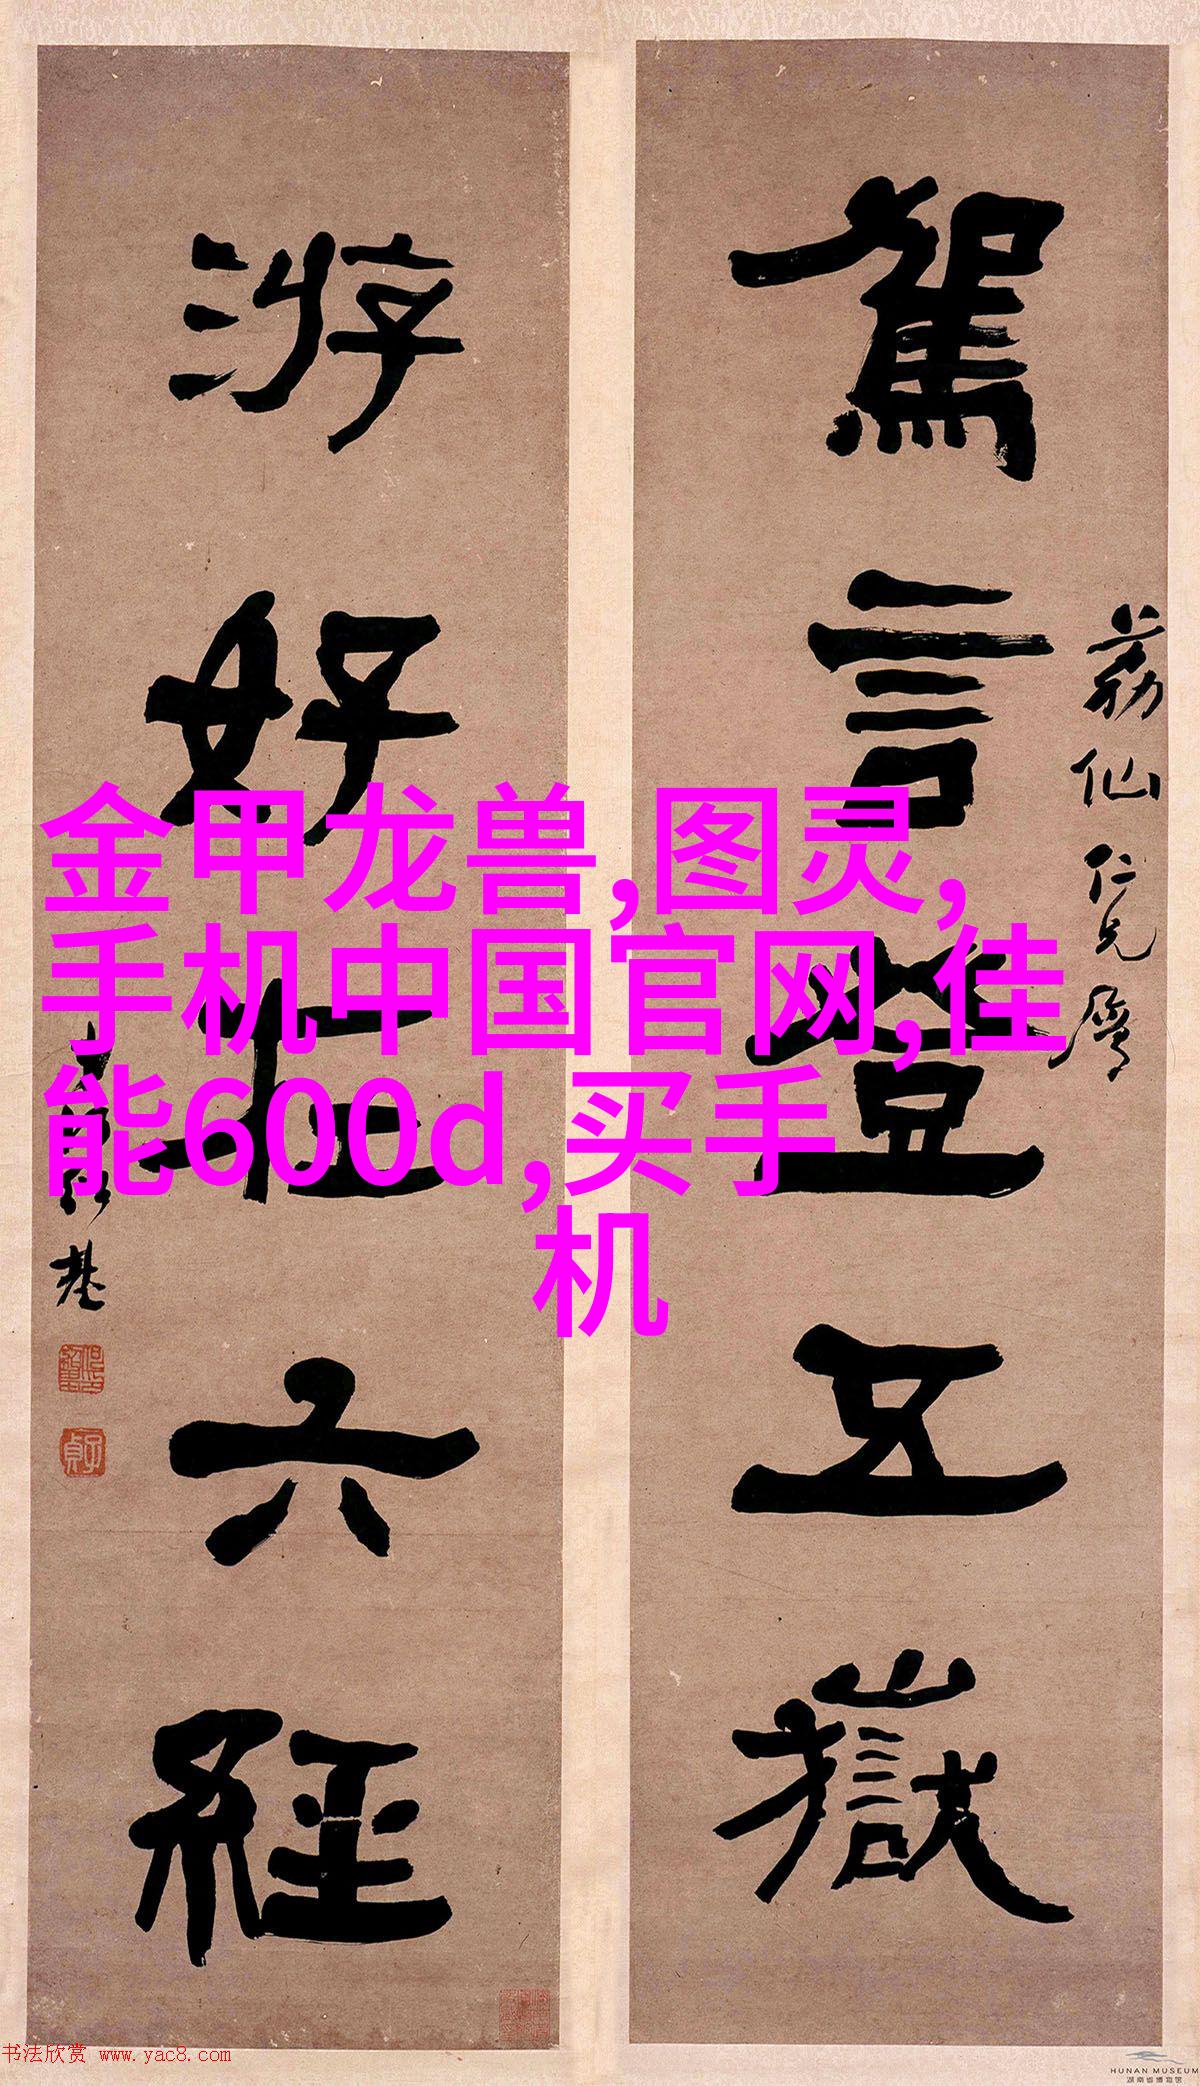 金甲龙兽,图灵,
手机中国官网,佳
能600d,买手
机
駕言登五嶽
荔仙仁兄属
游好在六經
子貞
书法欣赏 www.yac8.com
HUNAN MUSEUM
湖南省博物馆